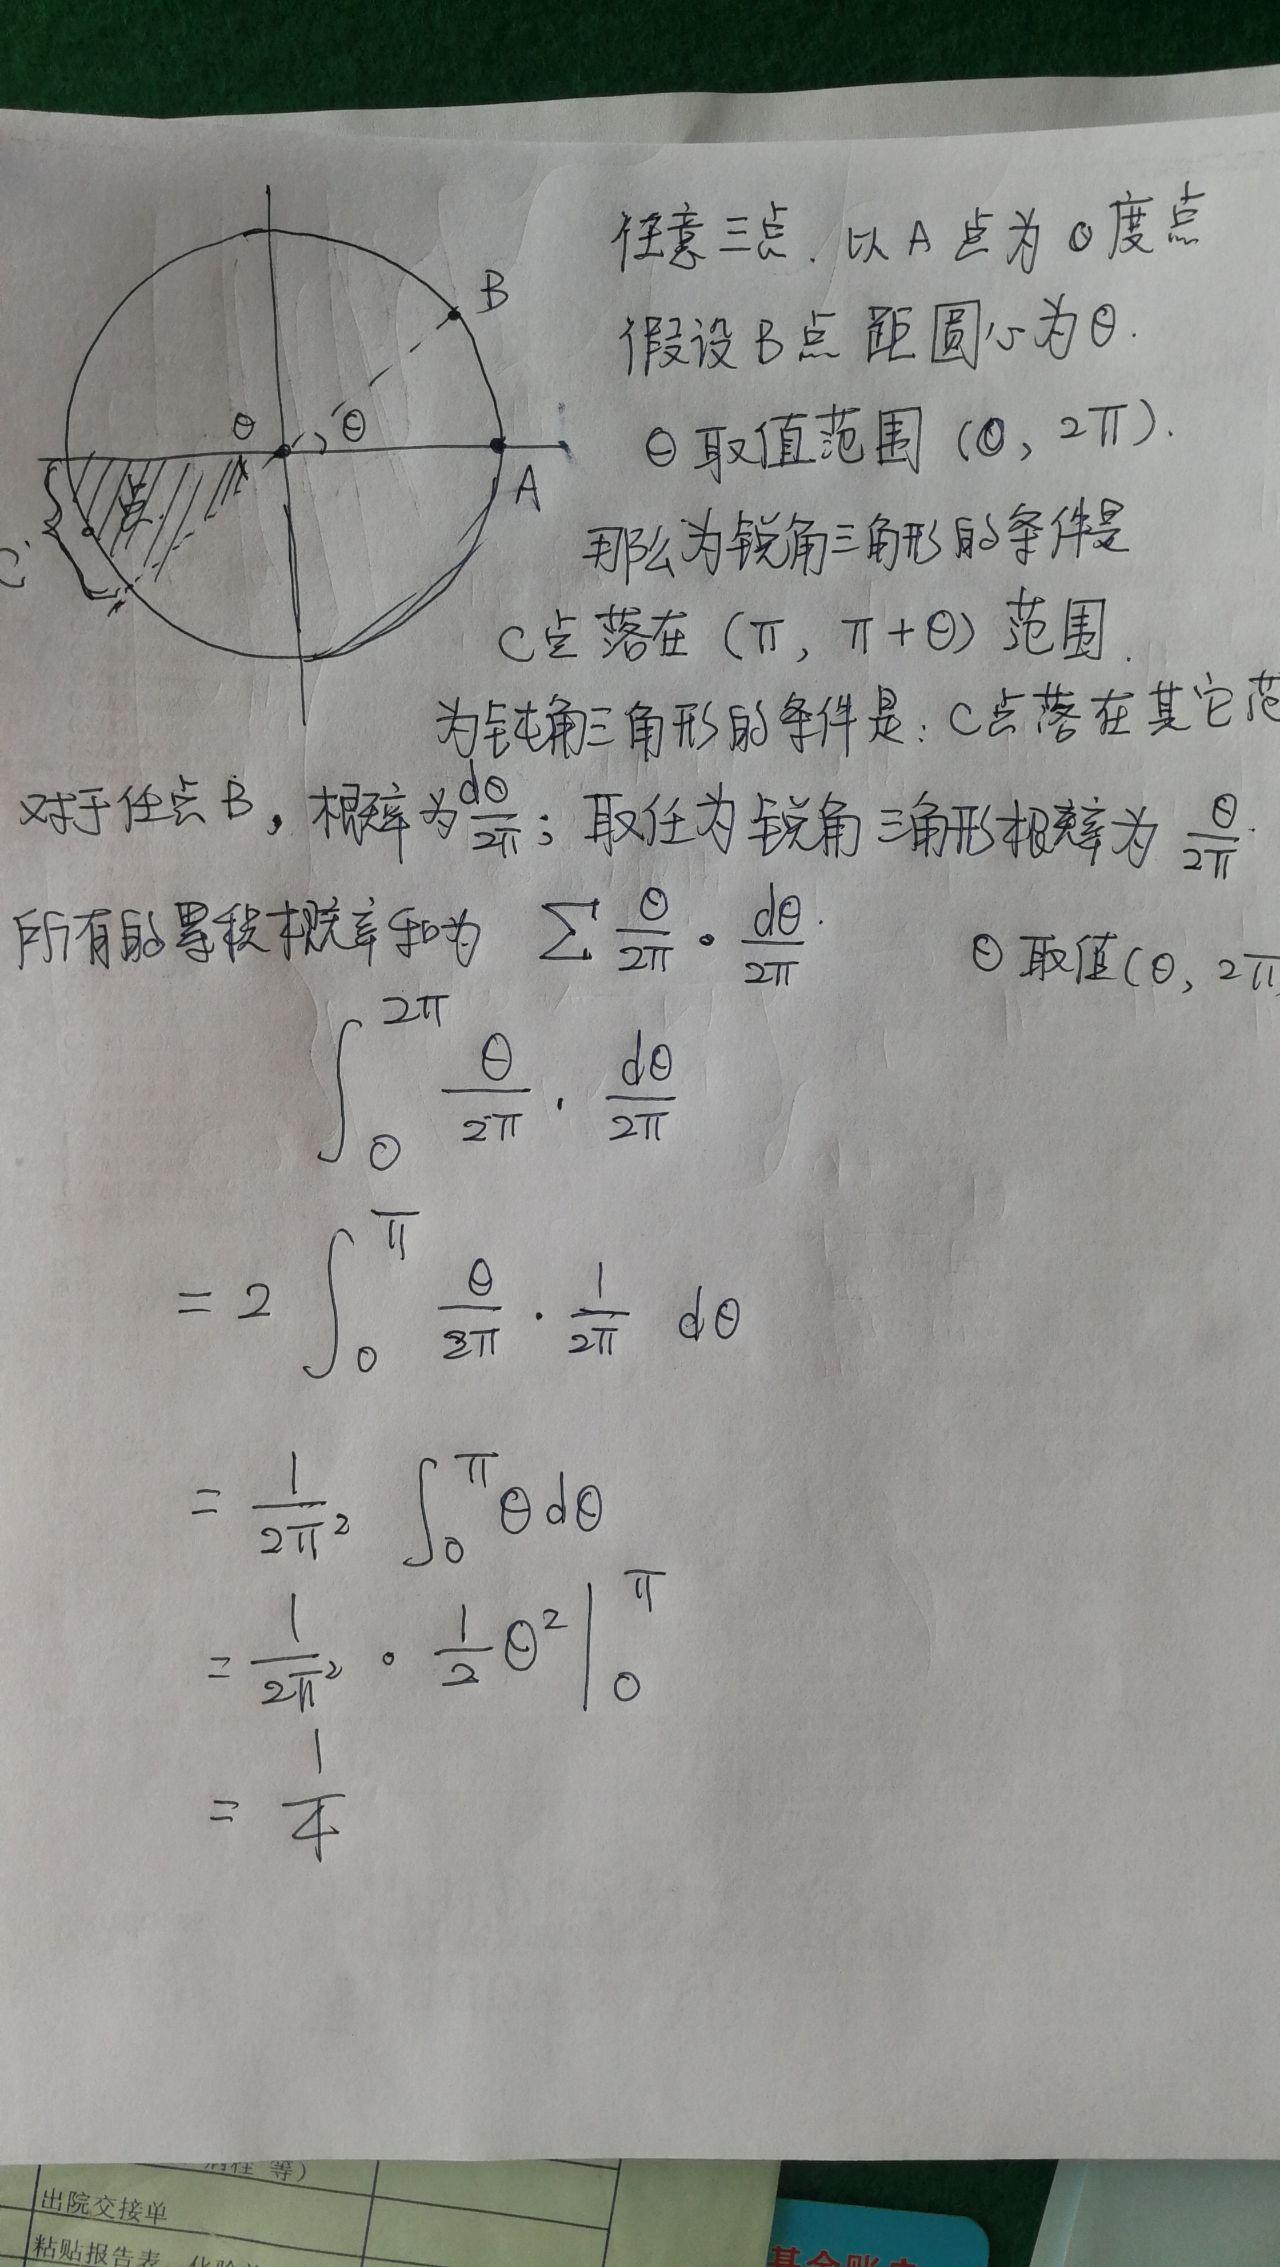 任意三点. 以A点为0度点
B
假设B点距圆心为θ.
θ θ
θ取值范围(0, 2π).
A
点
那么为锐角三角形的条件是
C
C点落在(π, π+θ)范围.
为钝角三角形的条件是: C点落在其它范
对于任点B, 概率为dθ/2π; 取任为锐角三角形概率为 θ/2π.
所有的累积概率和为 ∑ θ/2π · dθ/2π. θ取值(0, 2π
∫₀^2π θ/2π · dθ/2π
= 2 ∫₀^π θ/2π · 1/2π dθ
= 1/2π² ∫₀^π θdθ
= 1/2π² · 1/2 θ² |₀^π
= 1/4
病程 等)
出院交接单
粘贴报告表
基金账户